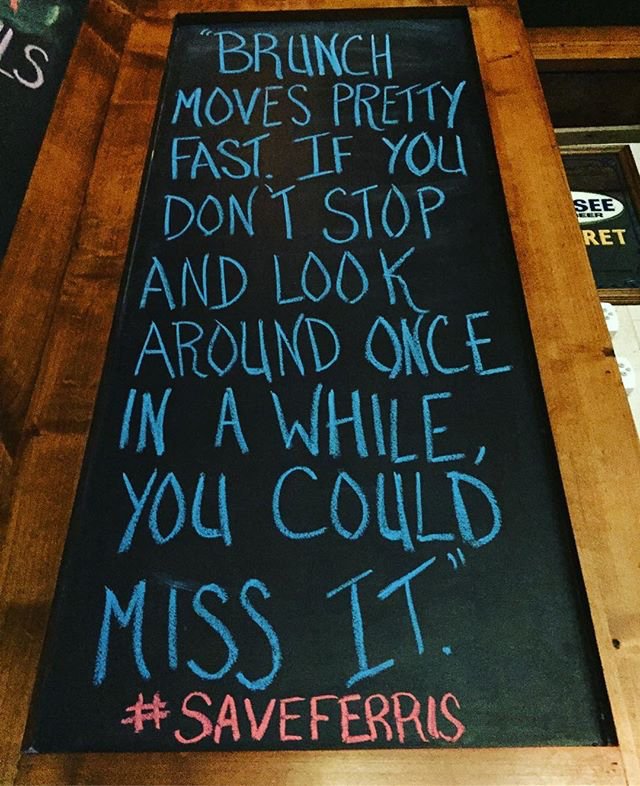 "BRUNCH
MOVES PRETTY
FAST. IF YOU
DON'T STOP
AND LOOK
AROUND ONCE
IN A WHILE,
YOU COULD
MISS IT."
#SAVEFERRIS
SEE
BEER
RET
LS